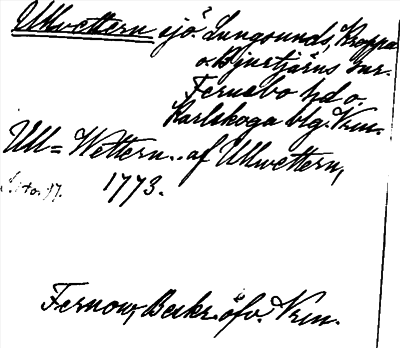 Ullvettern sjö Lungsunds, Kroppa
o. Bjurtjärns snr.
Fernebo hd o.
Karlskoga blg. Vrm.
Ull= Wettern.. af Ullwettern,
1773.
Fernow, Beskr. öfv. Vrm.